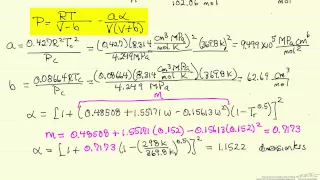 102.06 mol
P = RT/(V-b) - aα/(V(V+b))
a = 0.427R²Tc²/Pc = (0.427)(8.314 cm³MPa/mol K)²(369.8K)²/4.249MPa = 9.499x10⁵ cm⁶MPa/mol²
b = 0.08664RTc/Pc = (0.08664)(8.314 cm³MPa/mol K)(369.8K)/4.249 MPa = 62.69 cm³/mol
m
α = [1+(0.48508 + 1.55171ω - 0.15613ω²)(1-Tr^0.5)]²
m = 0.48508 + 1.55171(0.152) - 0.15613(0.152)² = 0.7173
α = [1 + 0.7173 (1-(298K/369.8K)^0.5)]² = 1.1522 dimensionless